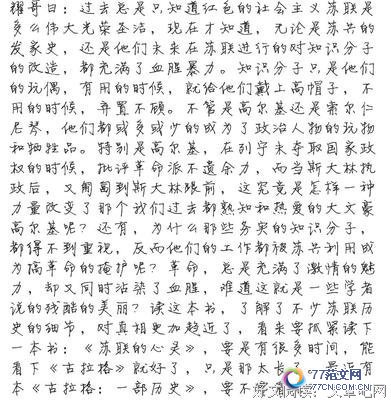 耀哥曰：过去总是只知道红色的社会主义苏联是
多么伟大光荣圣洁，现在才知道，无论是苏共的
发家史，还是他们未来在苏联进行的对知识分子
的改造，都充满了血腥暴力。知识分子只是他们
的玩偶，有用的时候，就给他们戴上高帽子，不
用的时候，弃置不顾。不管是高尔基还是索尔仁
尼琴，他们都或多或少的成为了政治人物的玩物
和牺牲品。特别是高尔基，在列宁未夺取国家政
权的时候，批评革命派不遗余力，而当斯大林执
政后，又匍匐到斯大林跟前，这究竟是怎样一种
力量改变了那个我们过去都熟知和热爱的大文豪
高尔基呢？还有，为什么那些务实的知识分子，
都得不到重视，反而他们的工作都被苏共利用成
为搞革命的掩护呢？革命，总是充满了激情的魅
力，却又同时沾染了血腥，难道这就是一些学者
说的残酷的美丽？读这本书，了解了不少苏联历
史的细节，对真相更加趋近了，看来要抓紧读下
一本书：《苏联的心灵》，要是有很多时间，能
看下《古拉格》就好了，只是那太长了，最近有
本《古拉格：一部历史》，要不
77CN范文网
www.77cn.com.cn